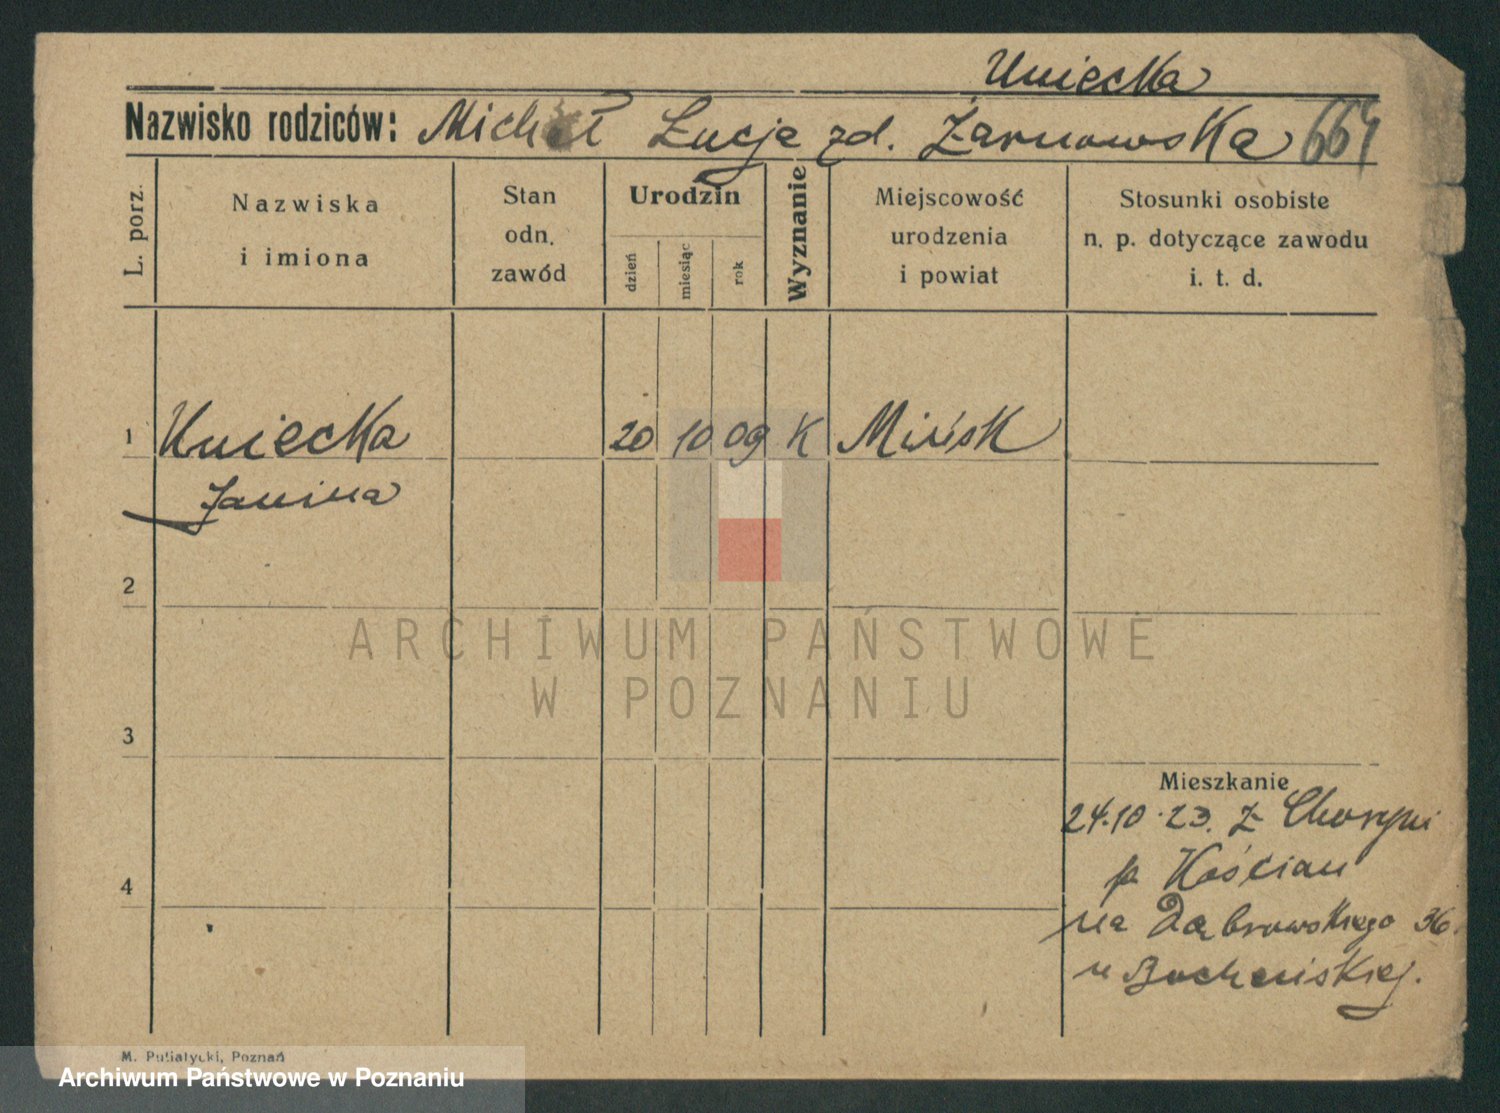 Uniecka
Nazwisko rodziców: Michał Łucja zd. Żarnowska 664
L. porz.
Nazwiska
i imiona
Stan
odn.
zawód
Urodzin
dzień
miesiąc
rok
Wyznanie
Miejscowość
urodzenia
i powiat
Stosunki osobiste
n. p. dotyczące zawodu
i. t. d.
1 Uniecka 20 10 09 K Mińsk
Janina
2
ARCHIWUM PAŃSTWOWE
W POZNANIU
3
Mieszkanie
24.10.23. z Choryni
p Kościan
4
na Dąbrowskiego 36.
u Bocheńskiej.
M. Putiatycki, Poznań
Archiwum Państwowe w Poznaniu